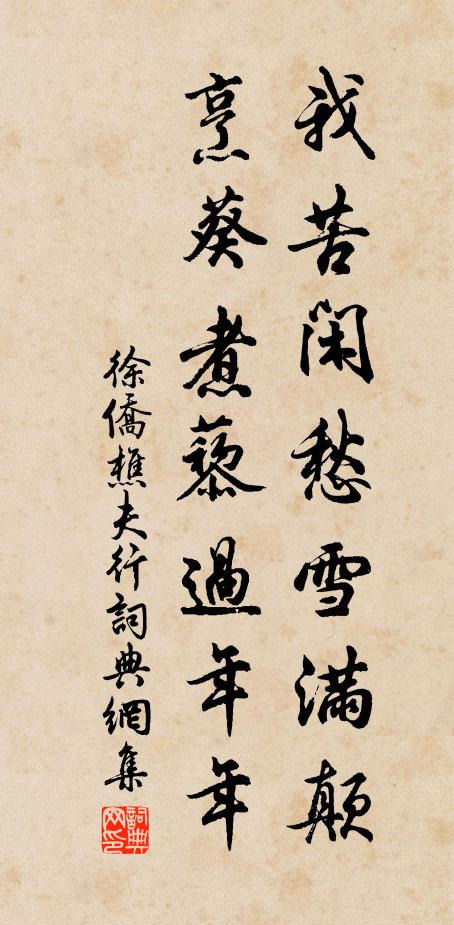 我苦閑愁雪滿顛
烹葵煮藜過年年
徐僑樵夫行詞典網集
詞典网印